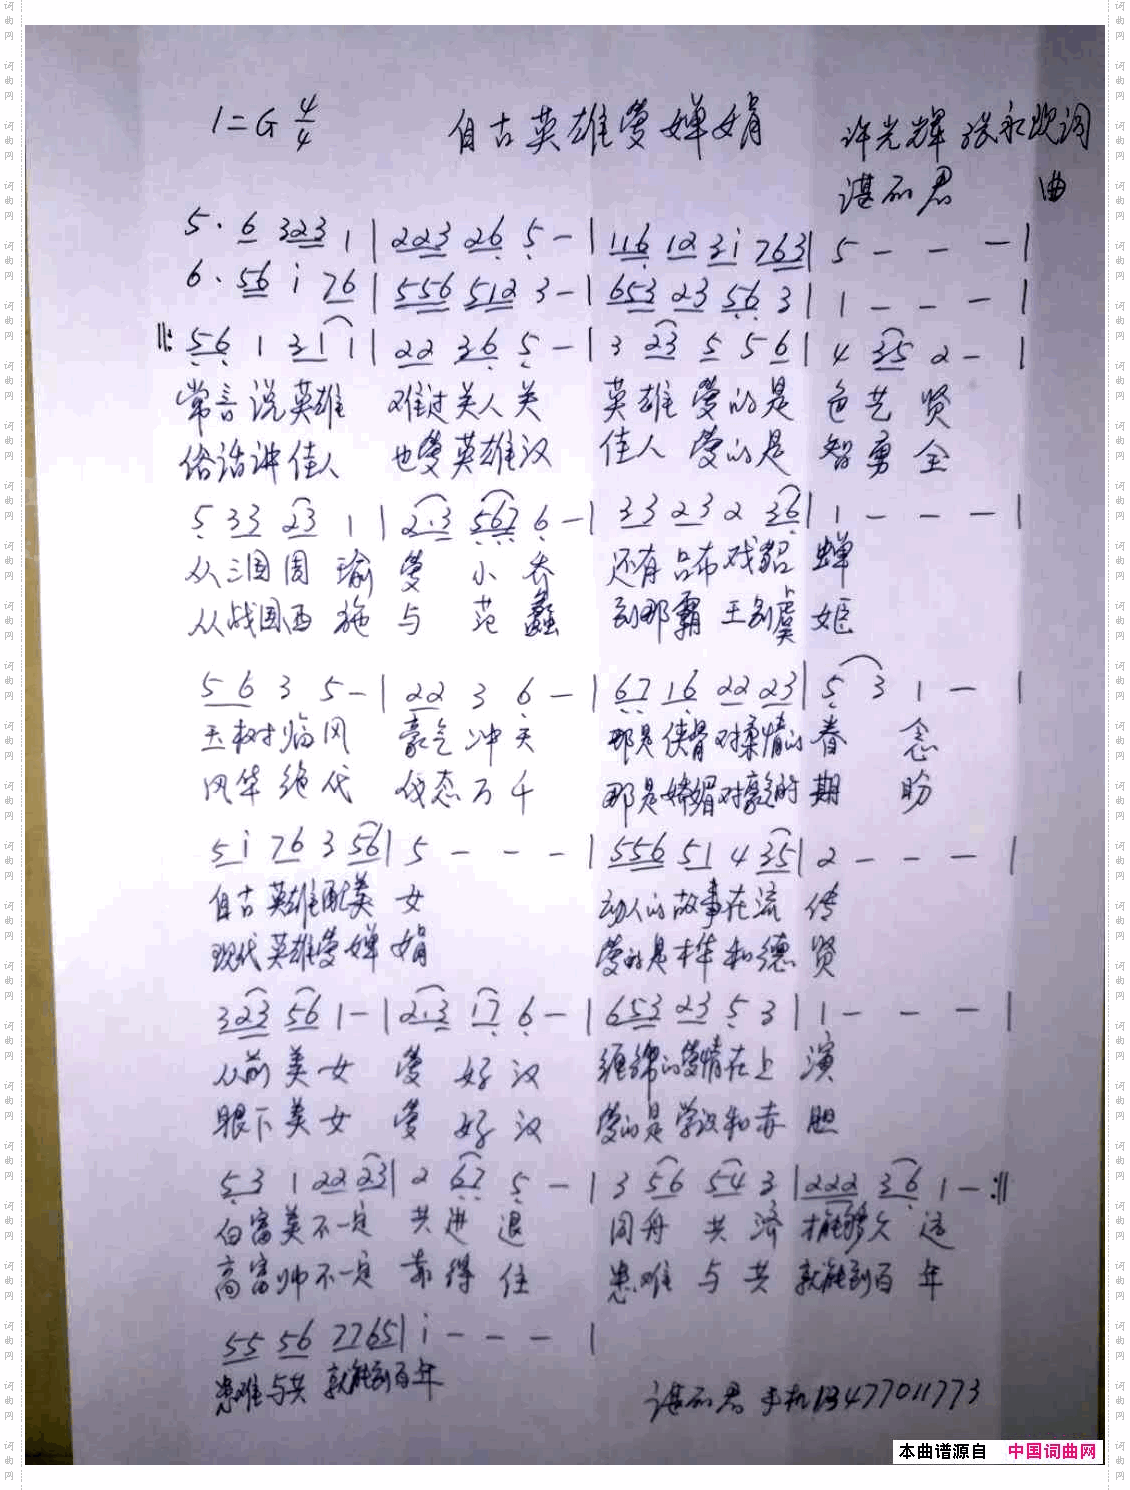 1=G 4/4 自古英雄爱婵娟 许光辉 张永欢词
谌丽君 曲
5· 6 323 1 | 223 26 5 - | 116 12 3i 763 | 5 - - - |
6· 56 i 76 | 556 512 3 - | 653 23 56 3 | 1 - - - |
‖: 56 1 31 1 | 22 36 5 - | 3 23 5 5 6 | 4 35 2 - |
常言说英雄 难过美人关 英雄爱的是 色艺贤
俗话讲佳人 也爱英雄汉 佳人爱的是 智勇全
5 33 23 1 | 2·3 567 6 - | 33 23 2 36 | 1 - - - |
从三国周瑜爱小乔 还有吕布戏貂蝉
从战国西施与范蠡 到那霸王别虞姬
56 3 5 - | 22 3 6 - | 67 16 22 23 | 5 3 1 - |
玉树临风 豪气冲天 那是侠骨对柔情的眷念
风华绝代 仪态万千 那是娇媚对豪迈的期盼
5i 76 3 56 | 5 - - - | 556 51 4 35 | 2 - - - |
自古英雄配美女 动人的故事在流传
现代英雄爱婵娟 爱的是才华和德贤
323 56 1 - | 2·3 17 6 - | 653 23 5 3 | 1 - - - |
从前美女爱好汉 缠绵的爱情在上演
眼下美女爱好汉 爱的是学识和赤胆
53 1 22 23 | 2 67 5 - | 3 56 54 3 | 222 36 1 - :‖
白富美不一定共进退 同舟共济 才能够久远
高富帅不一定靠得住 患难与共 就能到百年
55 56 7765 | i - - - |
患难与共 就能到百年
谌丽君 手机13477011773
本曲谱源自 中国词曲网